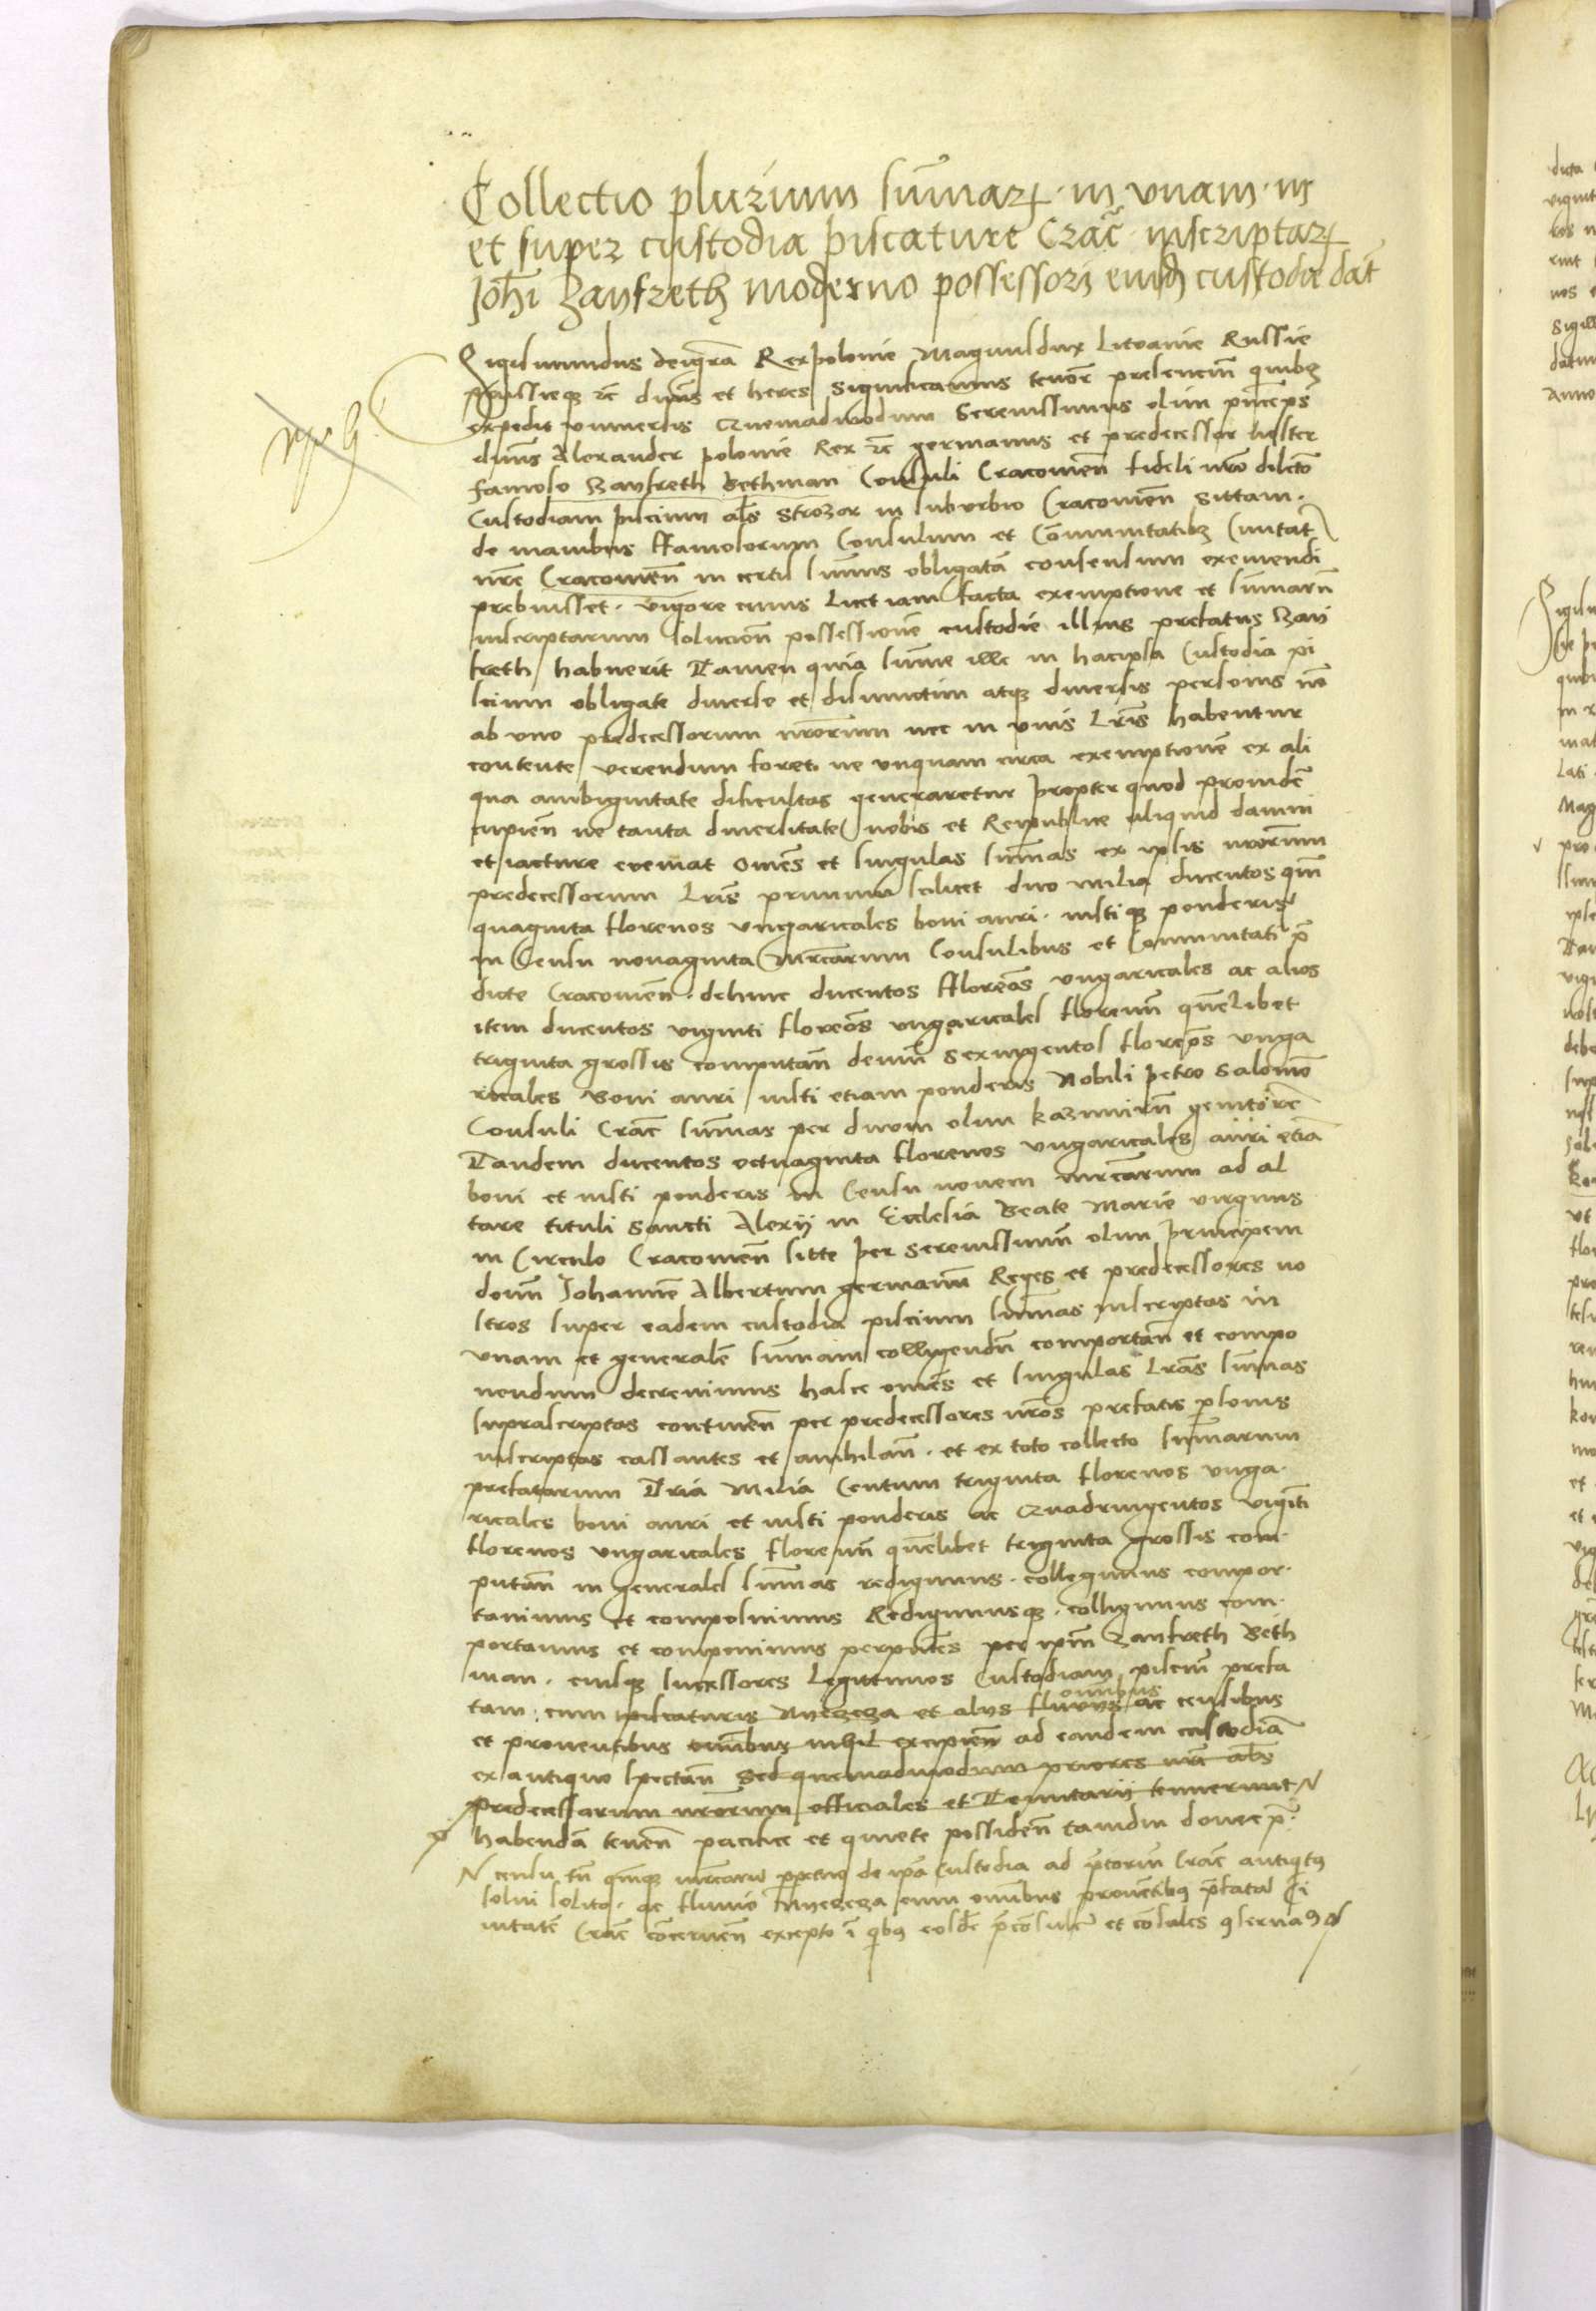 Collectio plurium sum̄arꝝ in vnam in
et super custodia piscature Crac̄ inscriptarꝝ
Joh̄i Zayfreth moderno possessori eiusd̄ custodie dat̄
Sigismundus dei gr̄a Rex polonie Magnus dux Litvanie Russie
prussieqꝫ ꝛc̄ dn̄us et heres Significamus tenor̄e presencium̄ quibꝫ
expedit vniuersis Quemadmodum Serenissimus olim prīnceps
dn̄us Alexander polonie Rex ꝛc̄ germanus et predecessor noster
famoso Zayfreth Bethman Consuli Cracouien̄ fideli nr̄o dilecto
Custodiam piscium al̄s Strozar in suburbio Cracouien̄ Sittam.
de manibus ffamosorum Consulum et Co̅munitatibꝫ Ciuitat̄
nr̄e Cracouien̄ in certis sum̄is obligata̅ consensum exemendi
prebuisset. Vigore cuius Licet iam facta exemptione et sum̄aru̅
inscriptarum solucion̄ possessione̅ custodie illius prefatus Zay
freth habuerit Tamen quia sum̄e ille in hac ipsa Custodia pi
scium obligate diuerse et disiunctim atqꝫ diuersis personis no̅
ab vno predecessorum nr̄orum nec in vnis Lr̄is habentur
contente verendum foret. ne vnquam circa exemptione̅ ex ali
qua ambiguitate dificultas generaretur propter quod prouide̅
cupien̄ ne tanta diuersitate nobis et Reipublice aliquid damni
et iacture eveniat omēs et singulas sum̄as ex ipsis nr̄orum
predecessorum Lr̄is primum scilicet duo milia ducentos qui̅
quaginta florenos vngaricales boni auri. iustiqꝫ ponderis
in Censu nonaginta Mr̄carum Consulibus et Communitati p̄
dicte Cracouien̄. dehinc ducentos ffloreōs vngaricales ac alios
item ducentos viginti floreōs vngaricales florenu̅ quēlibet
triginta grossis computan̄ demu̅ Sexingentos floreōs vnga
ricales boni auri iusti etiam ponderis Nobili petro Salomo̅
Consuli Crac̄ sum̄as per diuom olim Kazimiru̅ genitore̅
Tandem ducentos octuaginta florenos vngaricales auri etia̅
boni et iusti ponderis in Censu nouem mr̄carum ad al
tare tituli Sancti Alexij in Ecclesia Beate Marie virginis
in Circulo Cracouien̄ sitte per Serenissimu̅ olim principem
domn̄ Johanne̅ Albertum germanu̅ Reges et predecessores no
stros super eadem custodia piscium sum̄as inscriptas in
vnam et generale̅ sum̄am colligendu̅ comportan̄ et compo
nendum decreuimus hasce omēs et singulas Lr̄as sum̄as
suprascriptas continen̄ per predecessores nr̄os prefatis p̄sonis
inscriptas cassantes et annihilan̄. et ex toto collecto sum̄arum
prefatarum Tria Milia Centum triginta florenos vnga.
ricales boni auri et iusti ponderis ac Quadringentos viginti
florenos vngaricales florenu̅ quēlibet triginta grossis com.
putan̄ in generales sum̄as redigimus. collegimus compor.
tauimus et composuimus Redigimusqꝫ. colligimus com.
portamus et componimus per pn̄tes per ipm̄ Zayfreth Beth
man. eiusqꝫ successores Legittimos Custodiam pisciu̅ prefa
tam cum piscaturis Nyecza et alijs fluvijs ac omnibus censibus
et prouentibus omnibus nihil excipien̄ ad eandem custodia̅
ex antiquo spectan̄ Sed quemadmodum priores nr̄i al̄s
predecessorum nr̄orum officiales et Tenutarij tenuerunt
habenda̅ tenen̄ pacifice et quiete possiden̄ tamdiu donec p̄
censu tn̄ quinqꝫ mr̄caru̅ perpetuo de ipa̅ Custodia ad p̄toriu̅ Crac̄ antiqitꝰ
solui solito. ac fluuio cum omnibus prouentibꝰ p̄fata̅ Ci
uitate̅ Crac̄ concernen̄ excepto i̅ qibꝰ eosde̅ p̄consule̅ et consules ꝯseruaꝰ